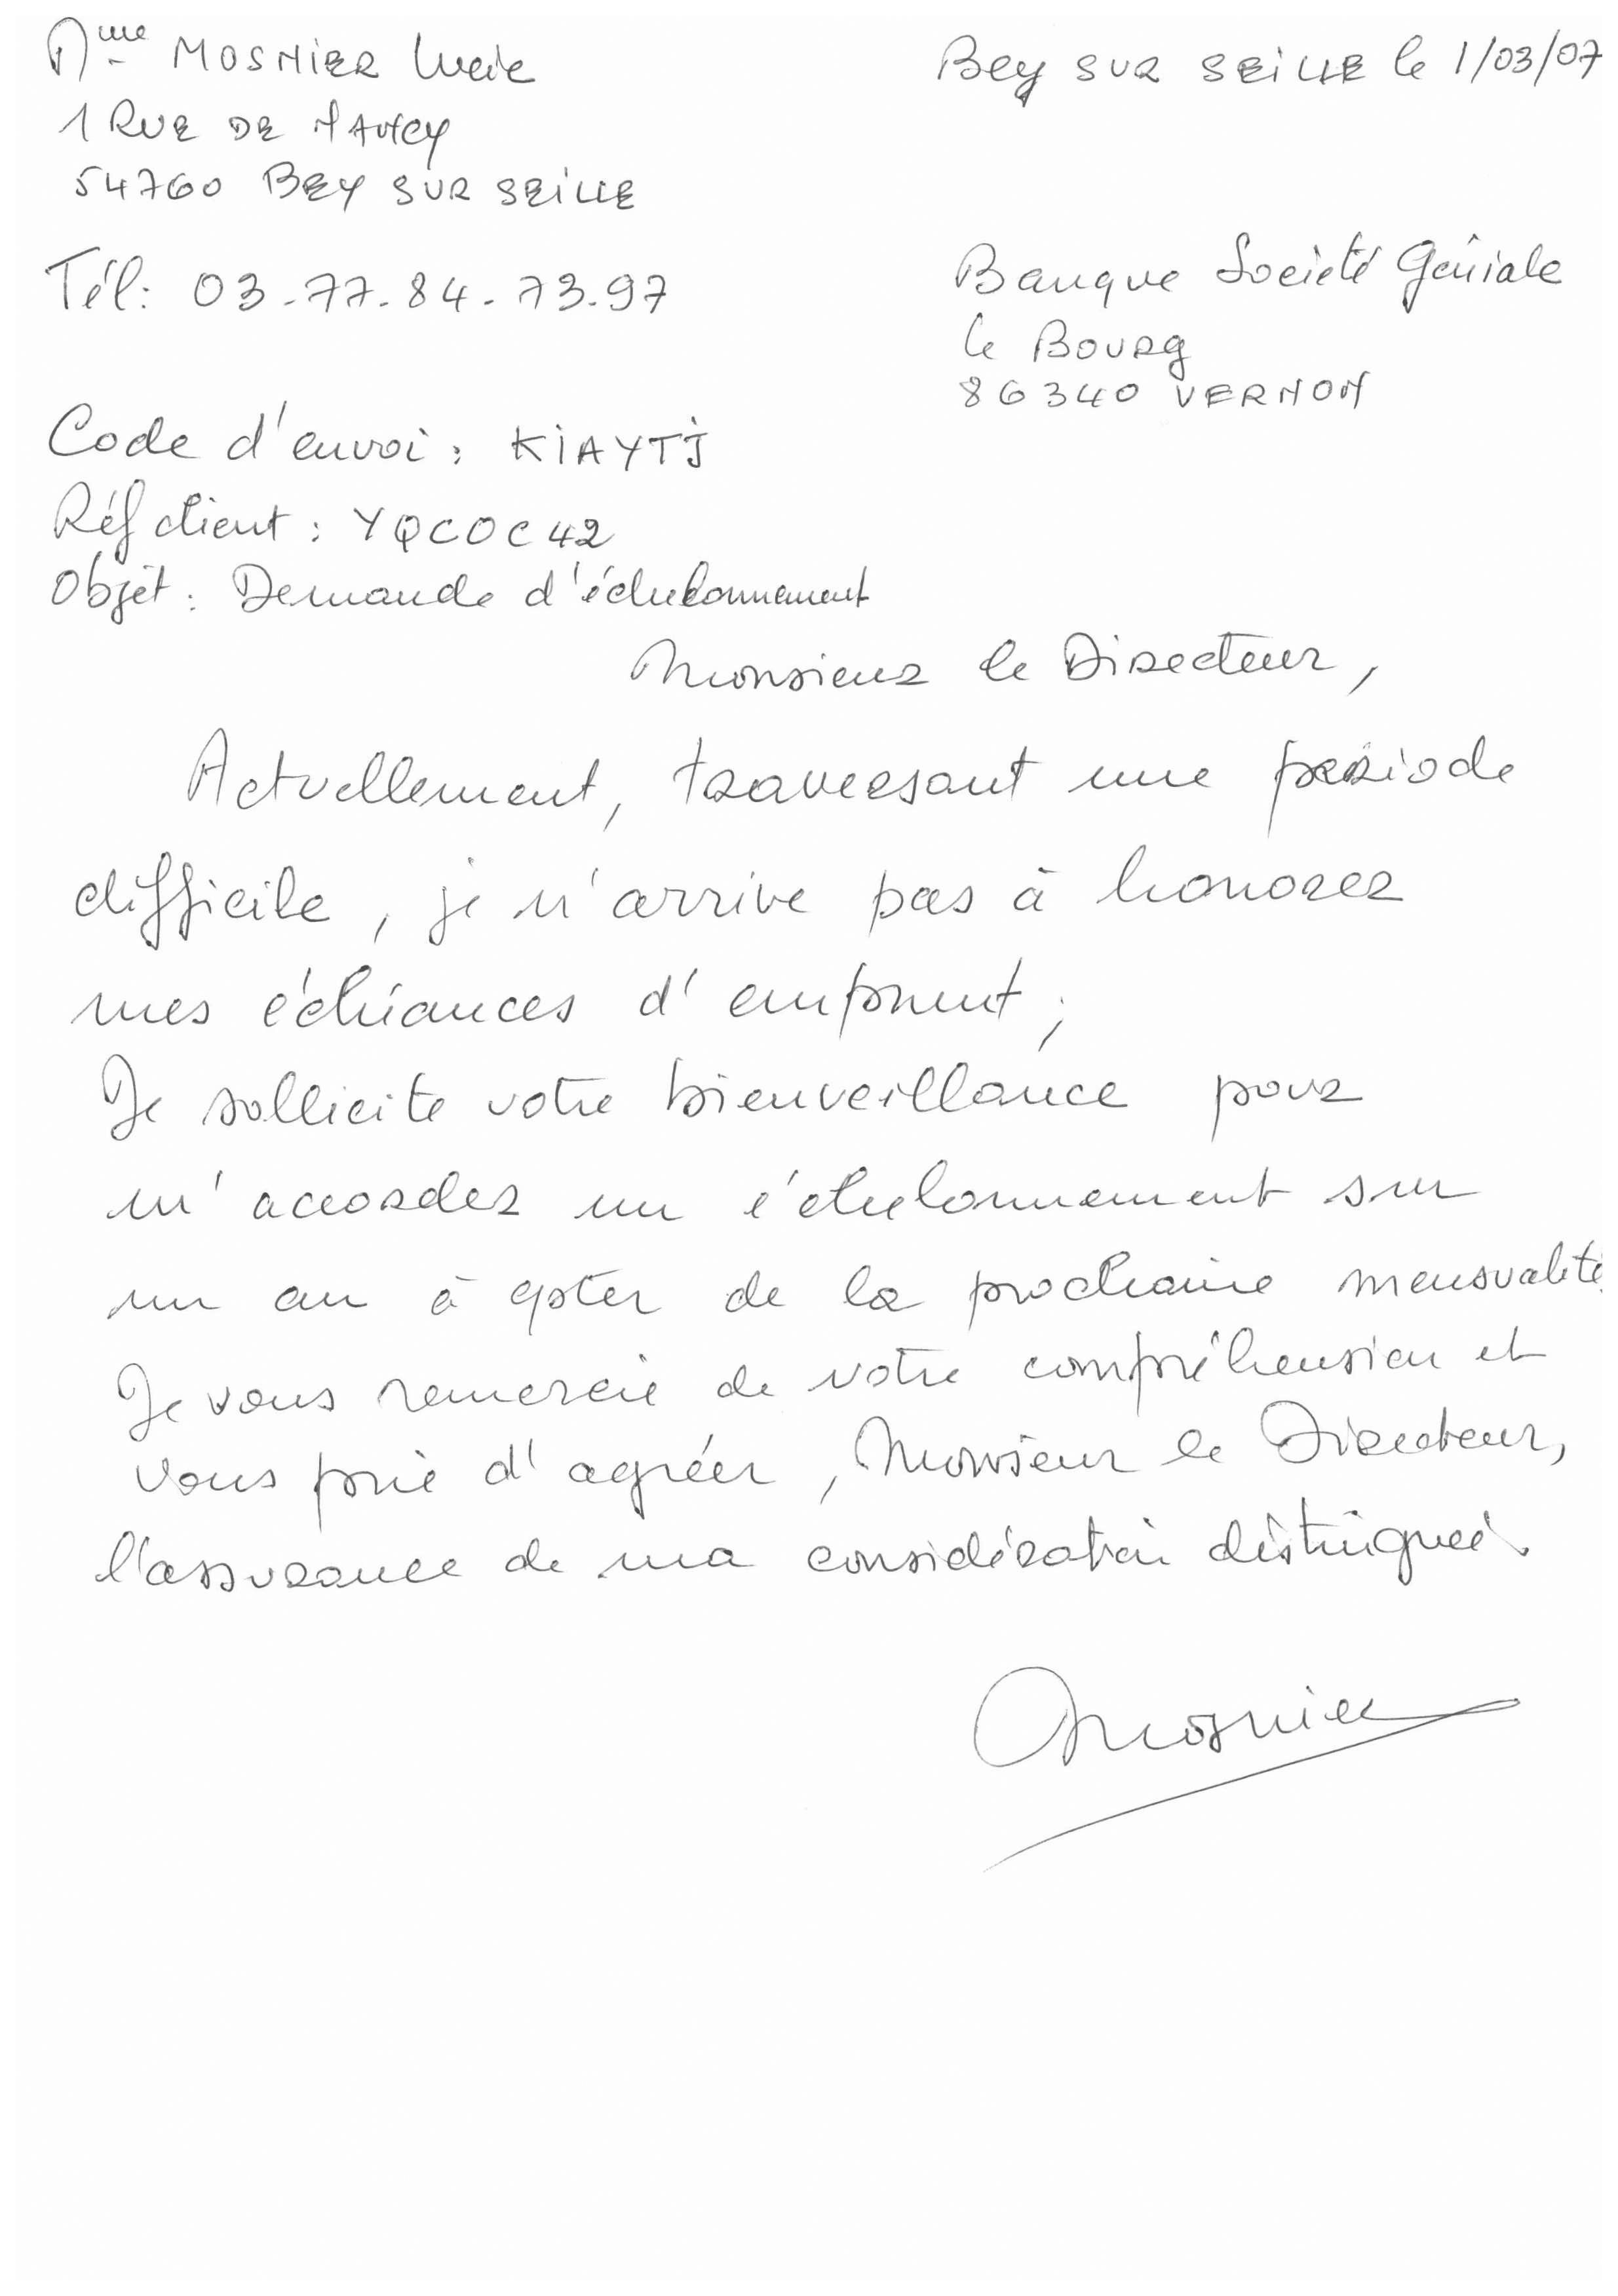 Mme MOSNIER Lucie
1 RUE DE NANCY
54760 BEY SUR SEILLE
Tél: 03-77-84-73-97
Bey SUR SEILLE le 1/03/07
Banque Société Géniale
le Bourg
86340 VERNON
Code d'envoi : KIAYTJ
Réf client : YQCOC42
Objet : Demande d'échelonnement
Monsieur le Directeur,
Actuellement, traversant une periode
difficile, je n'arrive pas à honorer
mes échéances d'emprunt ;
Je sollicite votre bienveillance pour
m'accorder un échelonnement sur
un an à cpter de la prochaine mensualité.
Je vous remercie de votre compréhension et
vous prie d'agréer, Monsieur le Directeur,
l'assurance de ma considération distinguée.
Mosnier